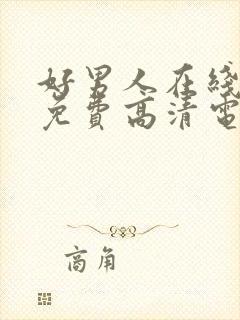 好男人在线
免費高清電
商角